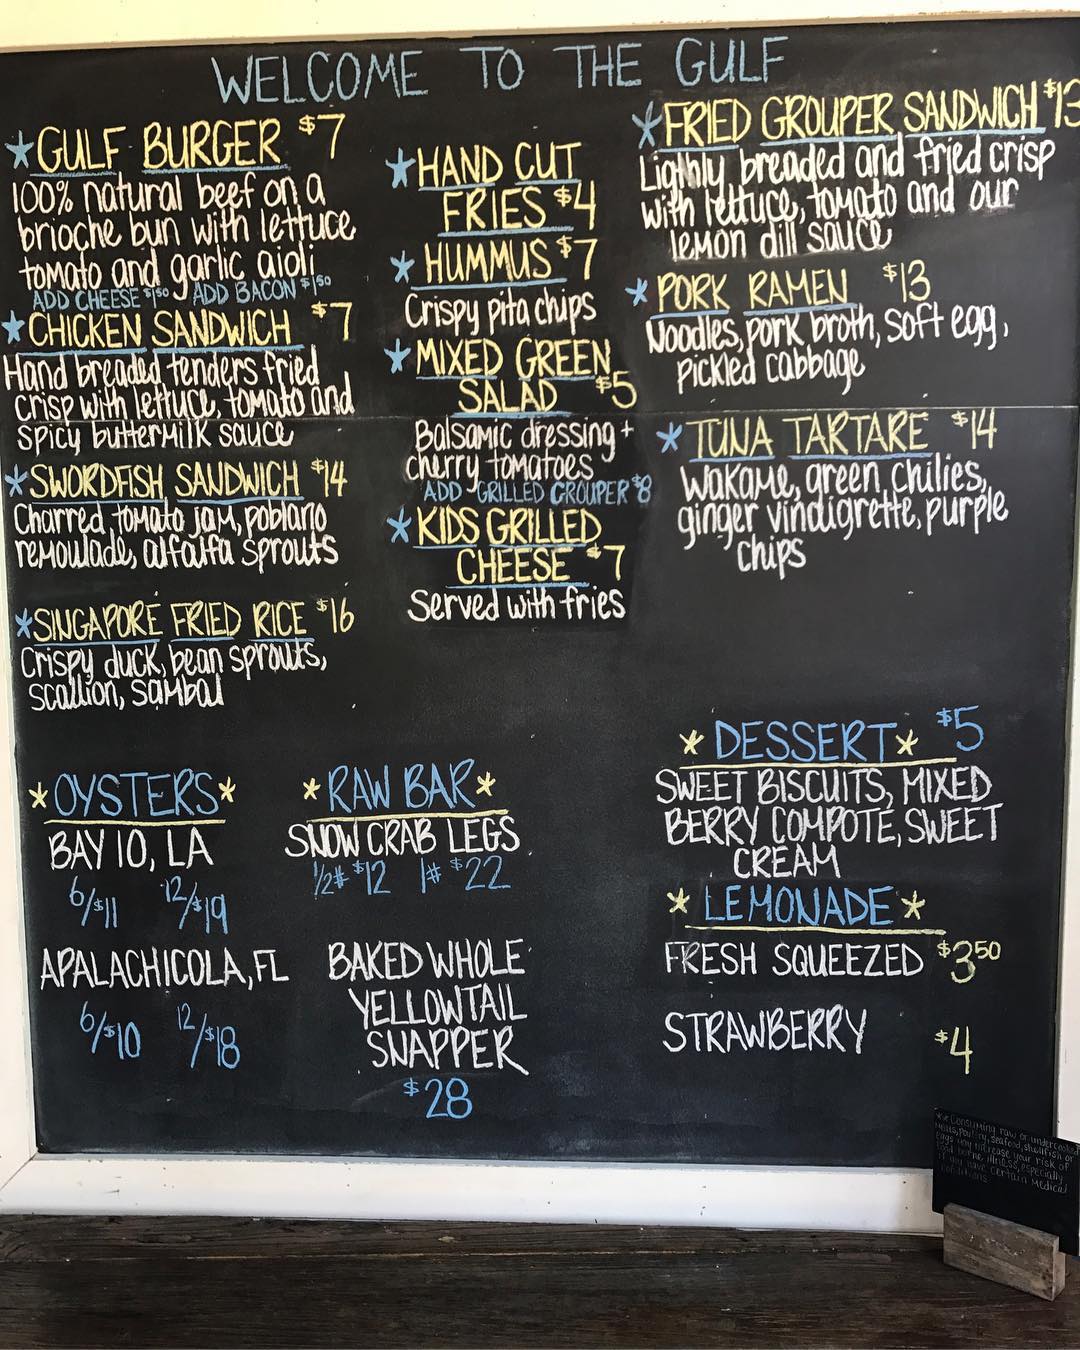 WELCOME TO THE GULF
*GULF BURGER $7
100% natural beef on a
brioche bun with lettuce
tomato and garlic aioli
ADD CHEESE $1.50 ADD BACON $1.50
*CHICKEN SANDWICH $7
Hand breaded tenders fried
crisp with lettuce, tomato and
spicy buttermilk sauce
*SWORDFISH SANDWICH $14
Charred tomato jam, poblano
remoulade, alfalfa sprouts
*SINGAPORE FRIED RICE $16
Crispy duck, bean sprouts,
scallion, sambal
*HAND CUT
FRIES $4
*HUMMUS $7
Crispy pita chips
*MIXED GREEN
SALAD $5
Balsamic dressing +
cherry tomatoes
ADD GRILLED GROUPER $8
*KIDS GRILLED
CHEESE $7
Served with fries
*FRIED GROUPER SANDWICH $13
Lighly breaded and fried crisp
with lettuce, tomato and our
lemon dill sauce
*PORK RAMEN $13
Noodles, pork broth, soft egg,
pickled cabbage
*TUNA TARTARE $14
Wakame, green chilies,
ginger vindigrette, purple
chips
*OYSTERS*
BAY 10, LA
6/$11 12/$19
APALACHICOLA, FL
6/$10 12/$18
*RAW BAR*
SNOW CRAB LEGS
1/2# $12 1# $22
BAKED WHOLE
YELLOWTAIL
SNAPPER
$28
*DESSERT* $5
SWEET BISCUITS, MIXED
BERRY COMPOTE, SWEET
CREAM
*LEMONADE*
FRESH SQUEEZED $3.50
STRAWBERRY $4
**Consuming raw or undercooked
meats, poultry, seafood, shellfish or
eggs may increase your risk of
food borne illness, especially
if you have certain medical
conditions